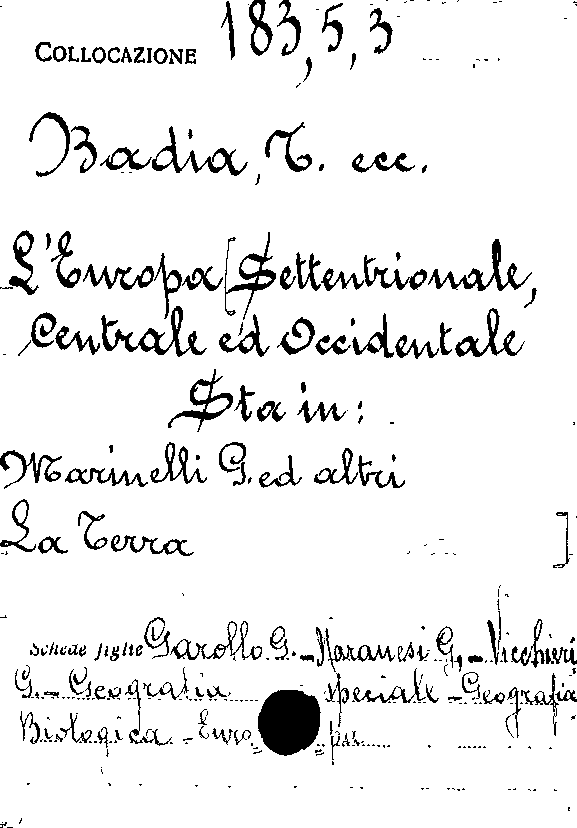 COLLOCAZIONE 183,5,3
Badia, T. ecc.
L'Europa [Settentrionale,
Centrale ed Occidentale
Sta in:
Marinelli G. ed altri
La Terra ]
Schede figlie Garollo G. - Maranesi G, - Vicchieri
G. - Geografia speciale - Geografia
Biologica - Euro pa